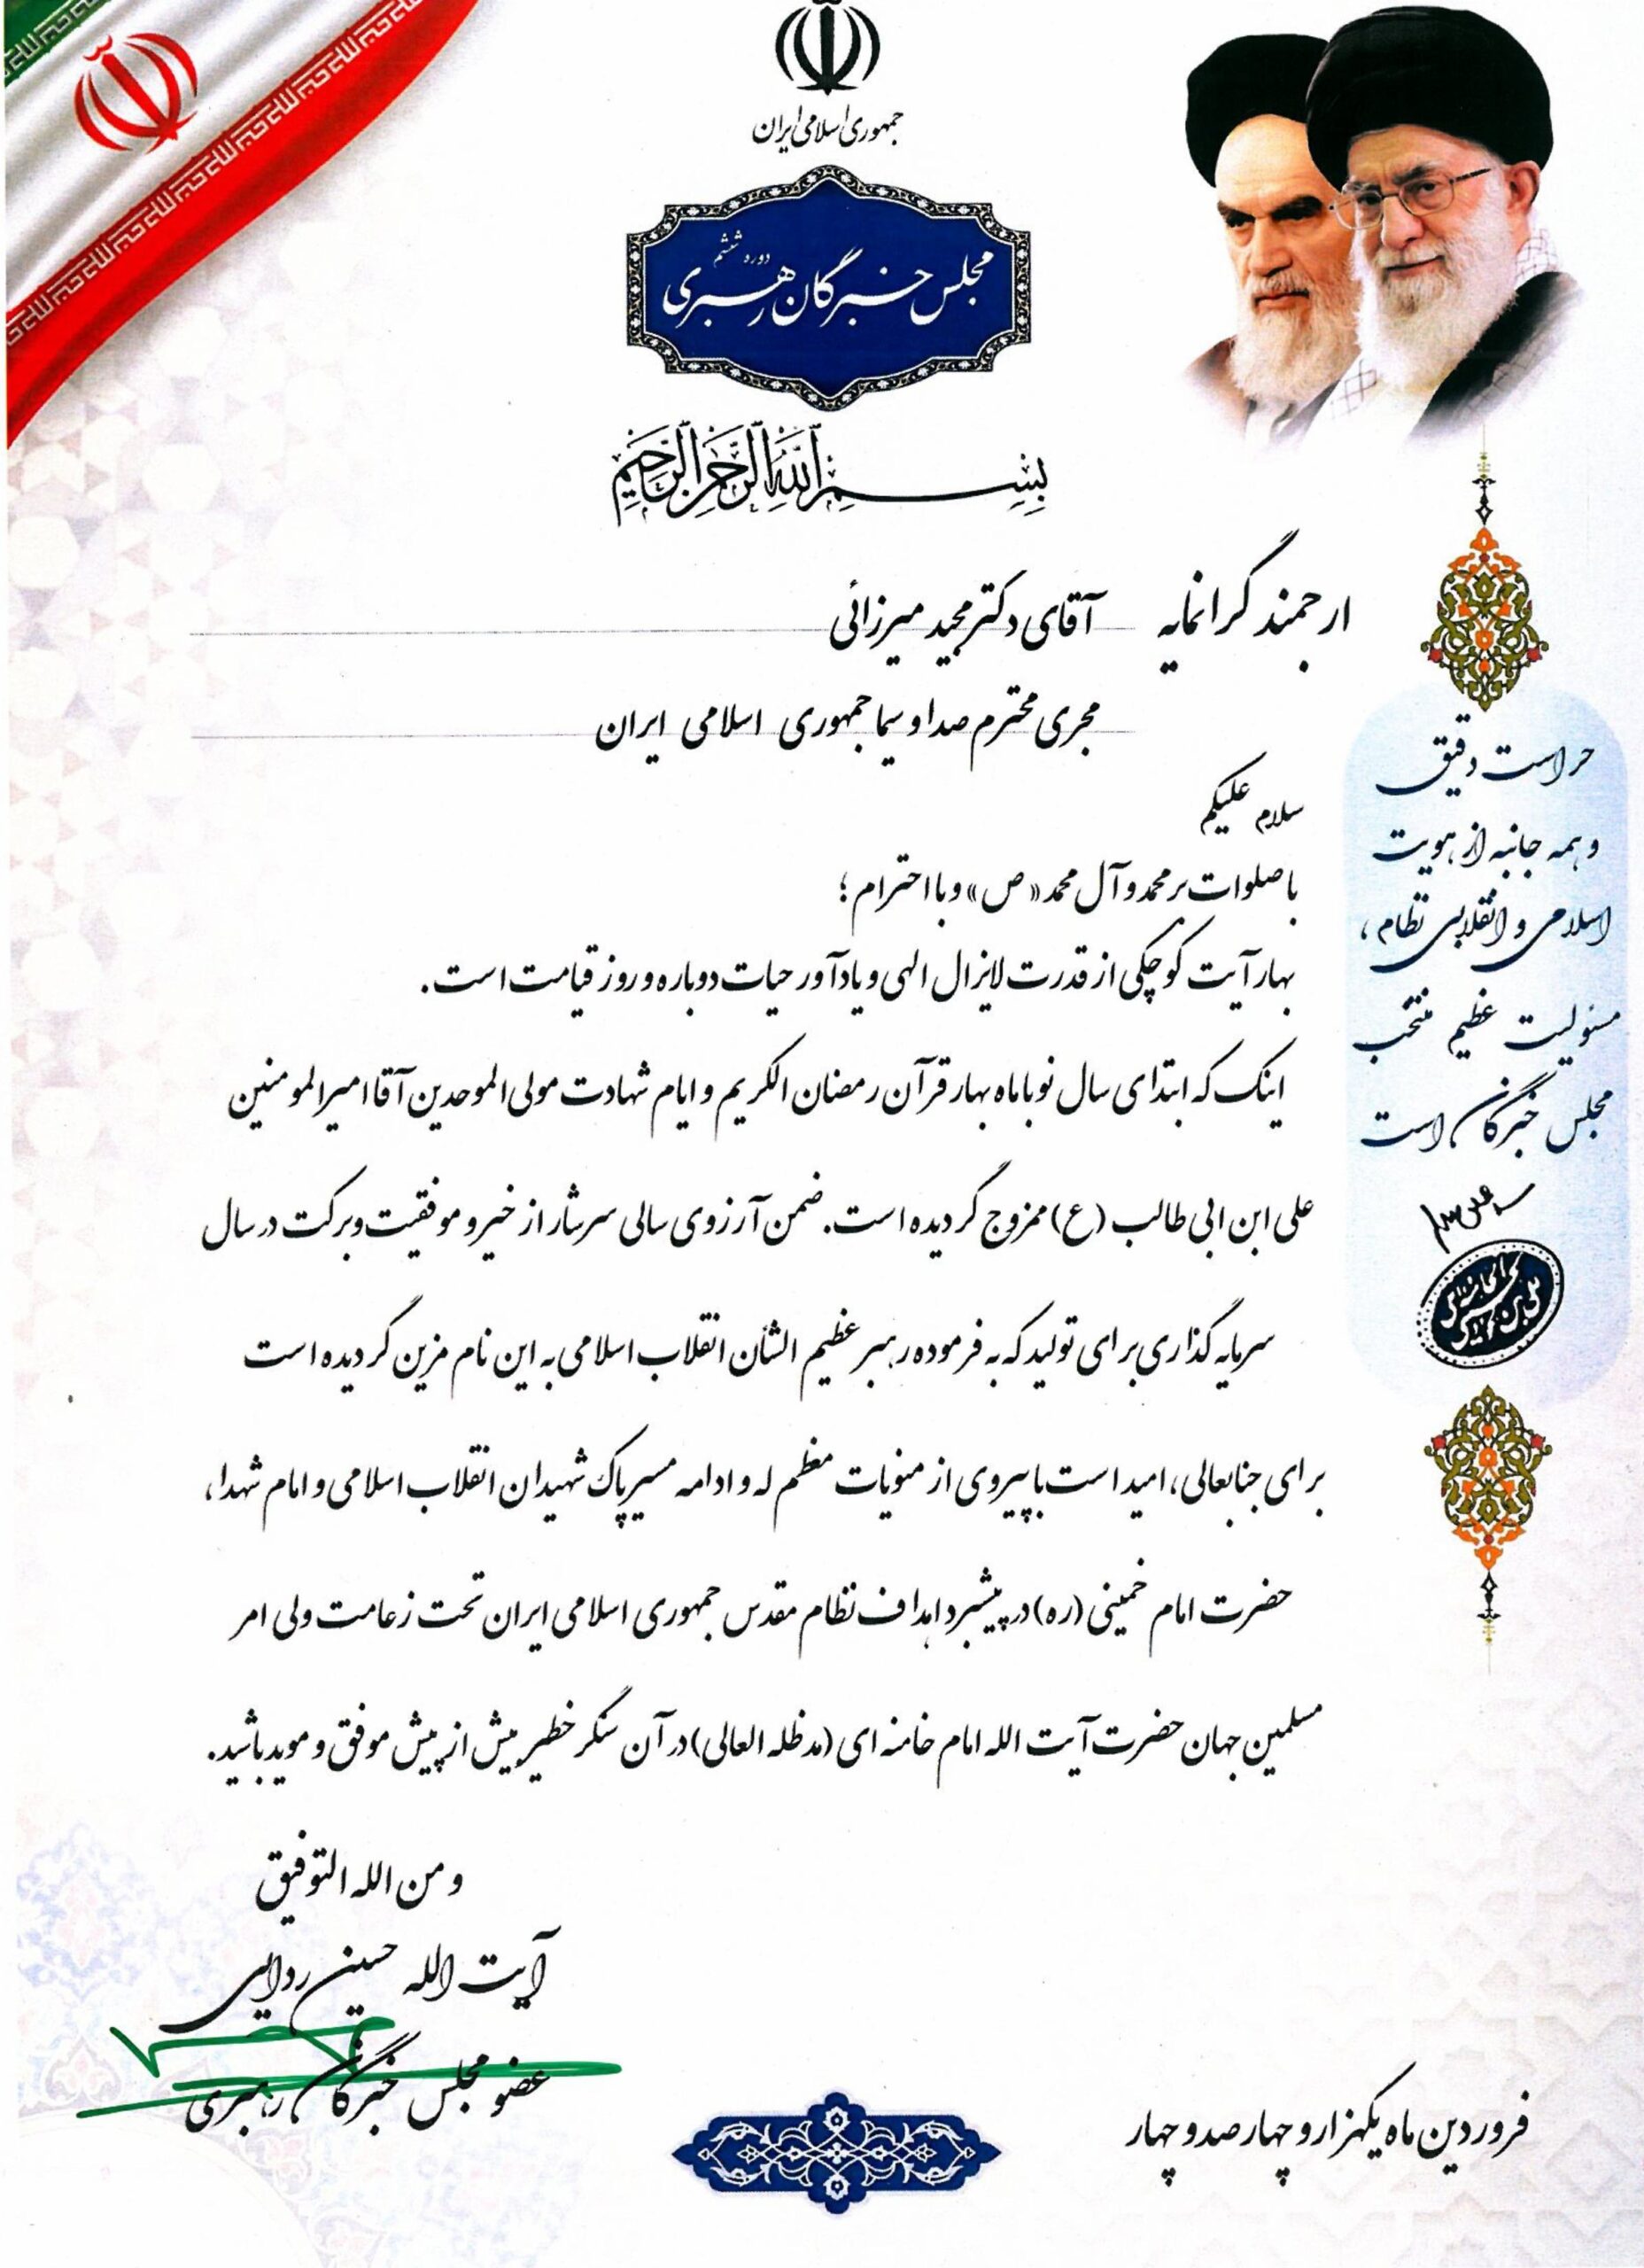 جمهوری اسلامی ایران
مجلس خبرگان رهبری
دوره ششم
بسم الله الرحمن الرحیم
ارجمند گرانمایه آقای دکتر مجید میرزائی
مجری محترم صدا و سیما جمهوری اسلامی ایران
سلام علیکم
با صلوات بر محمد و آل محمد «ص» و با احترام؛
بهار آیت کوچکی از قدرت لایزال الهی و یادآور حیات دوباره و روز قیامت است.
اینک که ابتدای سال نو با ماه بهار قرآن رمضان الکریم و ایام شهادت مولی الموحدین آقا امیرالمومنین
علی ابن ابی طالب (ع) ممزوج گردیده است. ضمن آرزوی سالی سرشار از خیر و موفقیت و برکت در سال
سرمایه گذاری برای تولید که به فرموده رهبر عظیم الشأن انقلاب اسلامی به این نام مزین گردیده است
برای جنابعالی، امید است با پیروی از منویات معظم له و ادامه مسیر پاک شهیدان انقلاب اسلامی و امام شهدا،
حضرت امام خمینی (ره) در پیشبرد اهداف نظام مقدس جمهوری اسلامی ایران تحت زعامت ولی امر
مسلمین جهان حضرت آیت الله امام خامنه ای (مدظله العالی) در آن سنگر خطیر بیش از پیش موفق و موید باشید.
و من الله التوفیق
آیت الله حسین ردایی
عضو مجلس خبرگان رهبری
فروردین ماه یکهزار و چهارصد و چهار
حراست دقیق
و همه جانبه از هویت
اسلامی و انقلابی نظام،
مسئولیت عظیم منتخب
مجلس خبرگان است